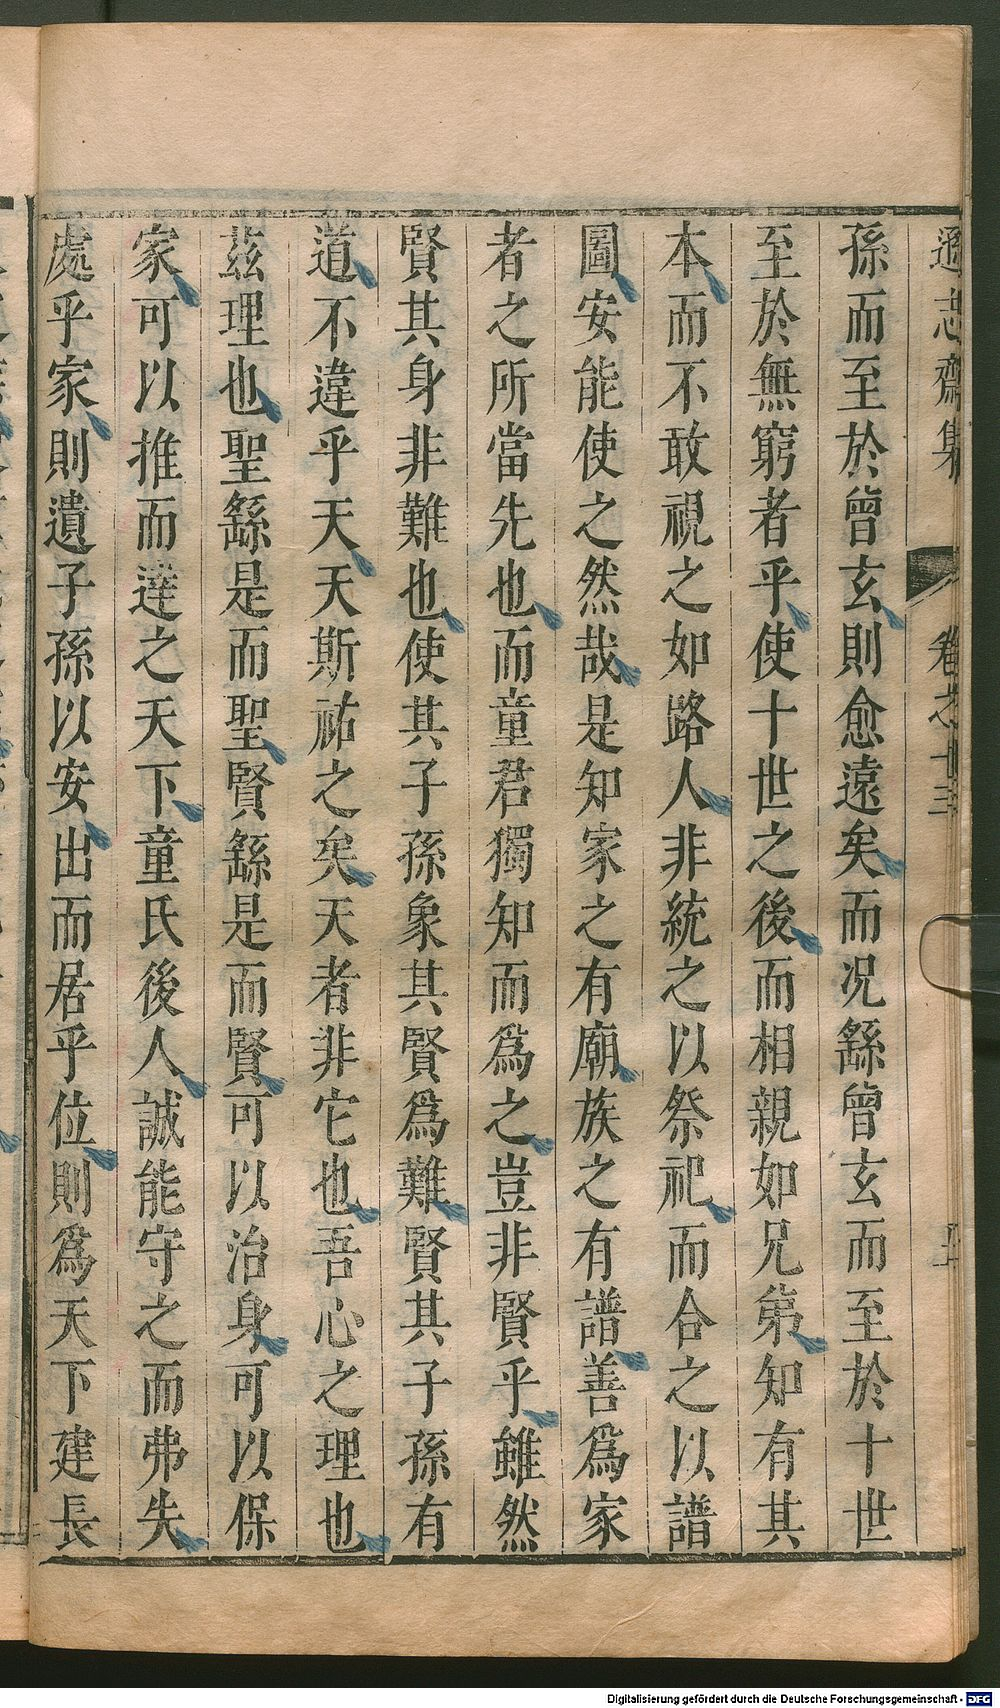 遜志齋集 卷之十三
孫而至於曾玄則愈遠矣而况繇曾玄而至於十世
至於無窮者乎使十世之後而相親如兄弟知有其
本而不敢視之如路人非統之以祭祀而合之以譜
圖安能使之然哉是知家之有廟族之有譜善為家
者之所當先也而童君獨知而為之豈非賢乎雖然
賢其身非難也使其子孫象其賢為難賢其子孫有
道不違乎天天斯祐之矣天者非它也吾心之理也
茲理也聖繇是而聖賢繇是而賢可以治身可以保
家可以推而達之天下童氏後人誠能守之而弗失
處乎家則遺子孫以安出而居乎位則為天下建長
Digitalisierung gefördert durch die Deutsche Forschungsgemeinschaft - DFG